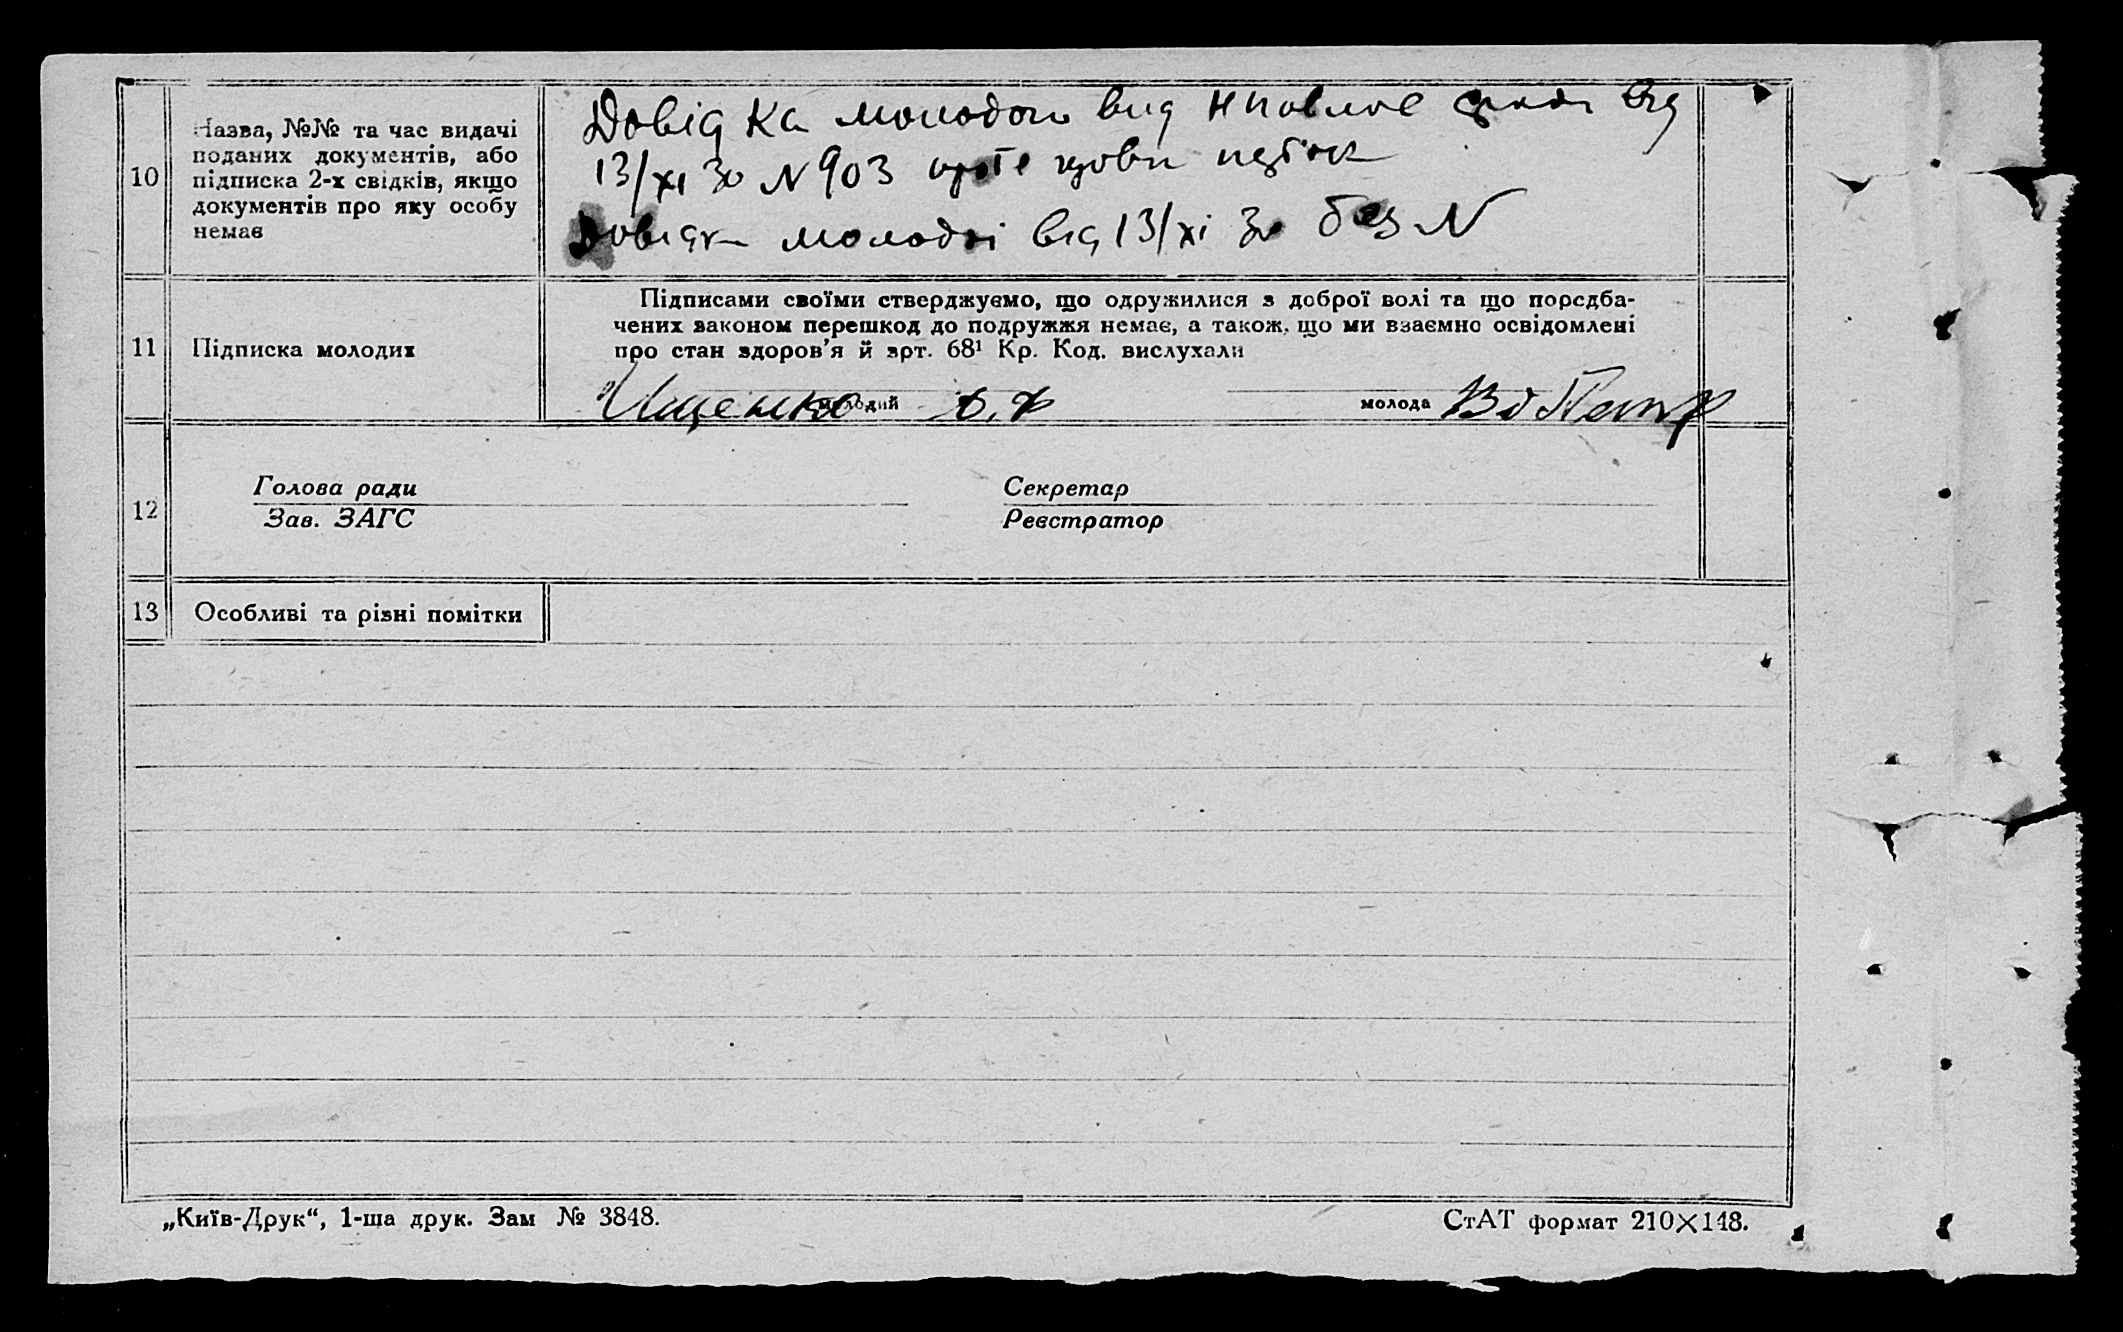 10
Назва, №№ та час видачі
поданих документів, або
підписка 2-х свідків, якщо
документів про яку особу
немає
Довідка молодого від
13/XI 30 N 903
Довідка молодої від 13/XI 30 без N
11
Підписка молодих
Підписами своїми стверджуємо, що одружилися з доброї волі та що поредба-
чених законом перешкод до подружжя немає, а також, що ми взаємно освідомлені
про стан здоров'я й арт. 68¹ Кр. Код. вислухали
Ищенко
молодий
молода
12
Голова ради
Зав. ЗАГС
Секретар
Реєстратор
13
Особливі та різні помітки
„Київ-Друк“, 1-ша друк. Зам № 3848.
СтАТ формат 210×148.